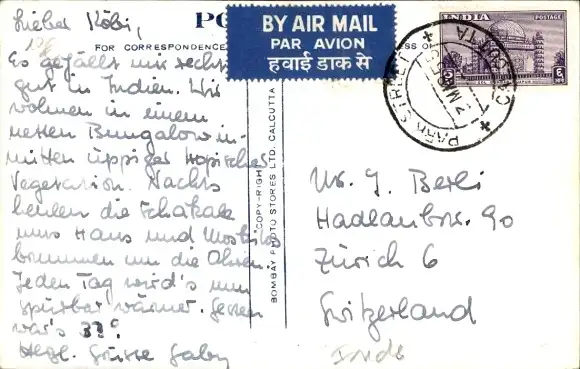 Lieber Köbi,
Es gefällt mir recht
gut in Indien. Wir
wohnen in einem
netten Bungalow in-
mitten üppiger tropischer
Vegetation. Nachts
heulen die Schakale
ums Haus und Moskitos
brummen um die Ohren.
Jeden Tag wird's nun
spürbar wärmer. Gestern
war's 33°
Herzl. Grüsse Gaby
PO
FOR CORRESPONDENCE
BY AIR MAIL
PAR AVION
हवाई डाक से
SS OF
COPY-RIGHT
BOMBAY PHOTO STORES LTD. CALCUTTA
INDIA POSTAGE
PARK STREET
CALCUTTA
Mr. J. Berli
Hadlaubstr. 90
Zürich 6
Switzerland
Inde